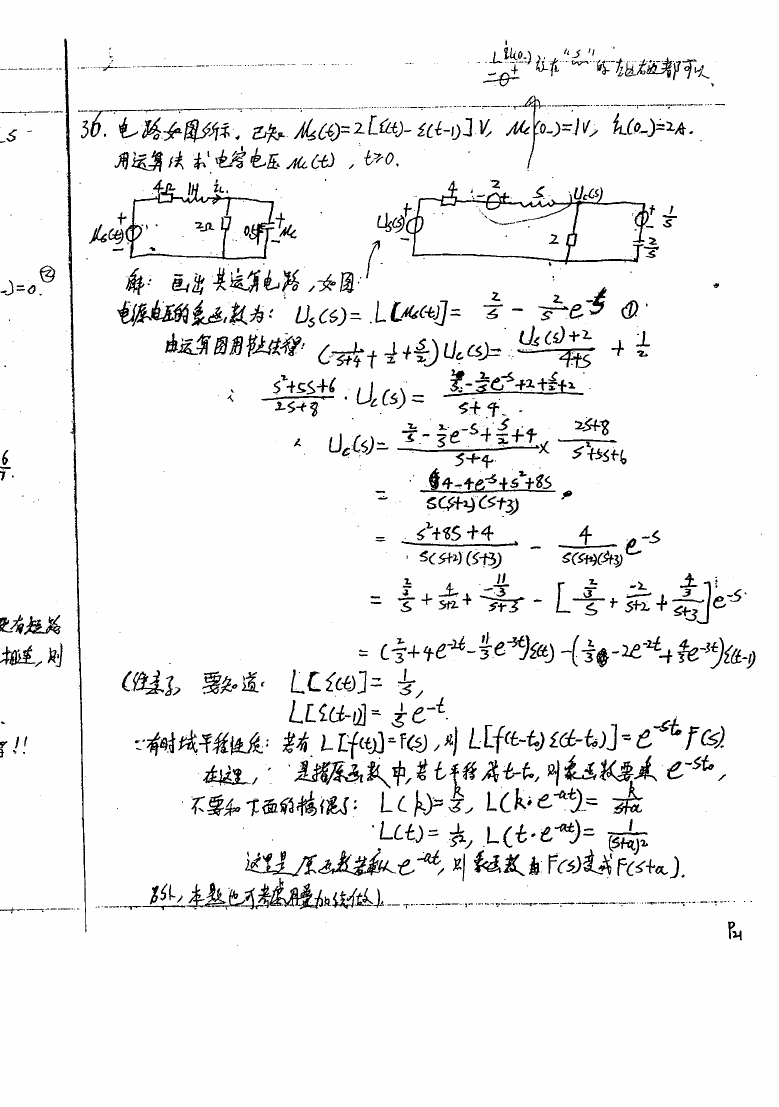 L iL(0-) 放在"S"的左边右边都可以
36. 电路如图所示。已知 us(t)=2[ε(t)-ε(t-1)]V, uc(0-)=1V, iL(0-)=2A.
用运算法求电容电压 uc(t), t>0.
4Ω 1H iL us(t) + - 2Ω 0.5F + - uc
4 2 - + S Uc(s) Us(s) + - 2 + - 1/S 2/S
解: 画出其运算电路, 如图
-)=0. ②
电源电压的象函数为: Us(s)= L[us(t)]= 2/S - 2/S e^-S ①
由运算图用节点法得: (1/(S+4) + 1/2 + S/2) Uc(s)= (Us(s)+2)/(4+S) + 1/2
∴ (S²+5S+6)/(2S+8) · Uc(s) = (2/S - 2/S e^-S +2+S/2+2)/(S+4)
∴ Uc(s)= (2/S - 2/S e^-S + S/2 +4)/(S+4) × (2S+8)/(S²+5S+6)
= (4-4e^-S+S²+8S)/(S(S+2)(S+3))
= (S²+8S+4)/(S(S+2)(S+3)) - 4/(S(S+2)(S+3)) e^-S
= (2/3)/S + 4/(S+2) + (-11/3)/(S+3) - [(2/3)/S + -2/(S+2) + (4/3)/(S+3)] e^-S
= (2/3+4e^-2t - 11/3 e^-3t)ε(t) - (2/3 -2e^-2t + 4/3 e^-3t)ε(t-1)
要知道: L[ε(t)]= 1/S,
L[ε(t-1)]= 1/S e^-t.
∵有时域平移性质: 若有 L[f(t)]=F(s), 则 L[f(t-t₀)ε(t-t₀)]= e^-st₀ F(s).
在这里, 是指原函数中, 若t平移成t-t₀, 则象函数要乘 e^-st₀,
不要和下面的搞混了: L(k)= k/S, L(k·e^-at)= k/(S+a)
L(t)= 1/S², L(t·e^-at)= 1/(S+a)²
这里是原函数若乘以 e^-at, 则象函数由F(s)变成F(s+a).
另外, 本题也可考虑用叠加法做).
P21